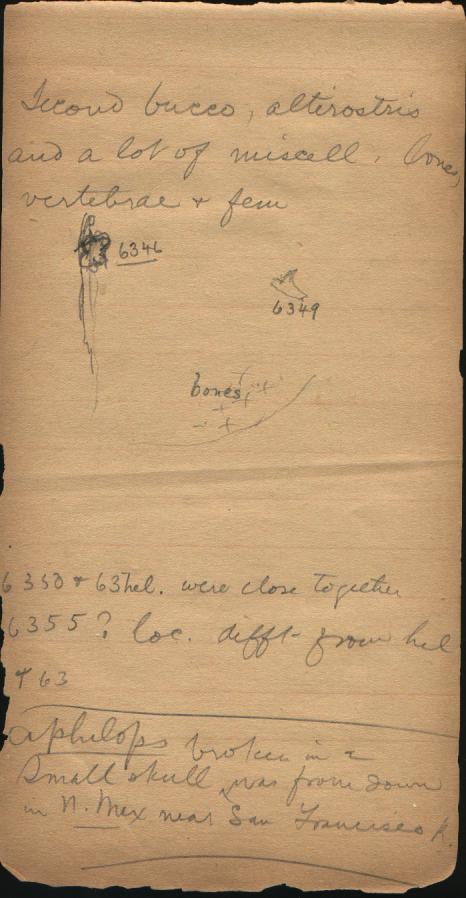 Second bucco, altirostris
and a lot of miscell. bones,
vertebrae + fem
6346
6349
bones,
6350 + 63hel. were close together
6355? loc. difft from hel
+ 63
aphelops broken in
Small skull was from down
in N. Mex near San Francisco R.